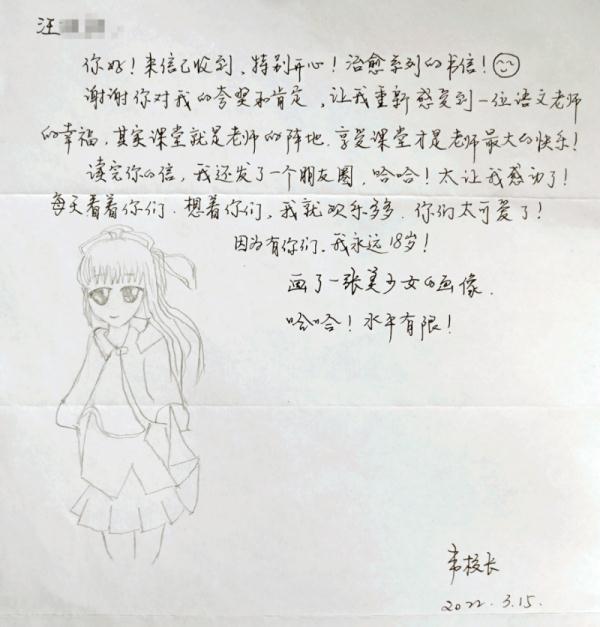 汪
你好！来信已收到，特别开心！治愈系列的书信！
谢谢你对我的夸奖和肯定，让我重新感受到一位语文老师
的幸福，其实课堂就是老师的阵地，享受课堂才是老师最大的快乐！
读完你的信，我还发了一个朋友圈，哈哈！太让我感动了！
每天看着你们，想着你们，我就欢乐多多，你们太可爱了！
因为有你们，我永远18岁！
画了一张美少女的画像，
哈哈！水平有限！
韦校长
2022.3.15.